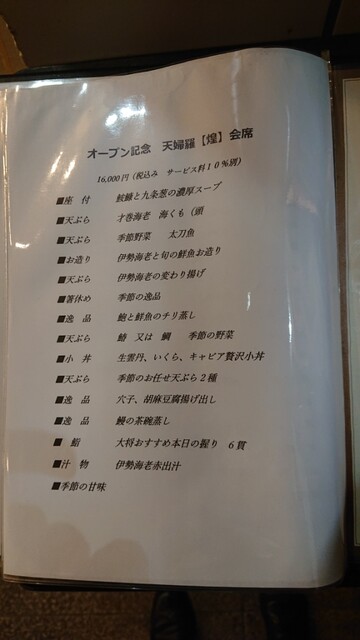 オープン記念　天婦羅【煌】会席
16,000円（税込み　サービス料１０％別）
■座　付　鮟鱇と九条葱の濃厚スープ
■天ぷら　才巻海老　海くも（頭
■天ぷら　季節野菜　太刀魚
■お造り　伊勢海老と旬の鮮魚お造り
■天ぷら　伊勢海老の変わり揚げ
■箸休め　季節の逸品
■逸　品　鮑と鮮魚のチリ蒸し
■天ぷら　又は　鯛　季節の野菜
■小　丼　生雲丹、いくら、キャビア贅沢小丼
■天ぷら　季節のお任せ天ぷら２種
■逸　品　穴子、胡麻豆腐揚げ出し
■逸　品　鰻の茶碗蒸し
■　鮨　大将おすすめ本日の握り　６貫
■汁　物　伊勢海老赤出汁
■季節の甘味